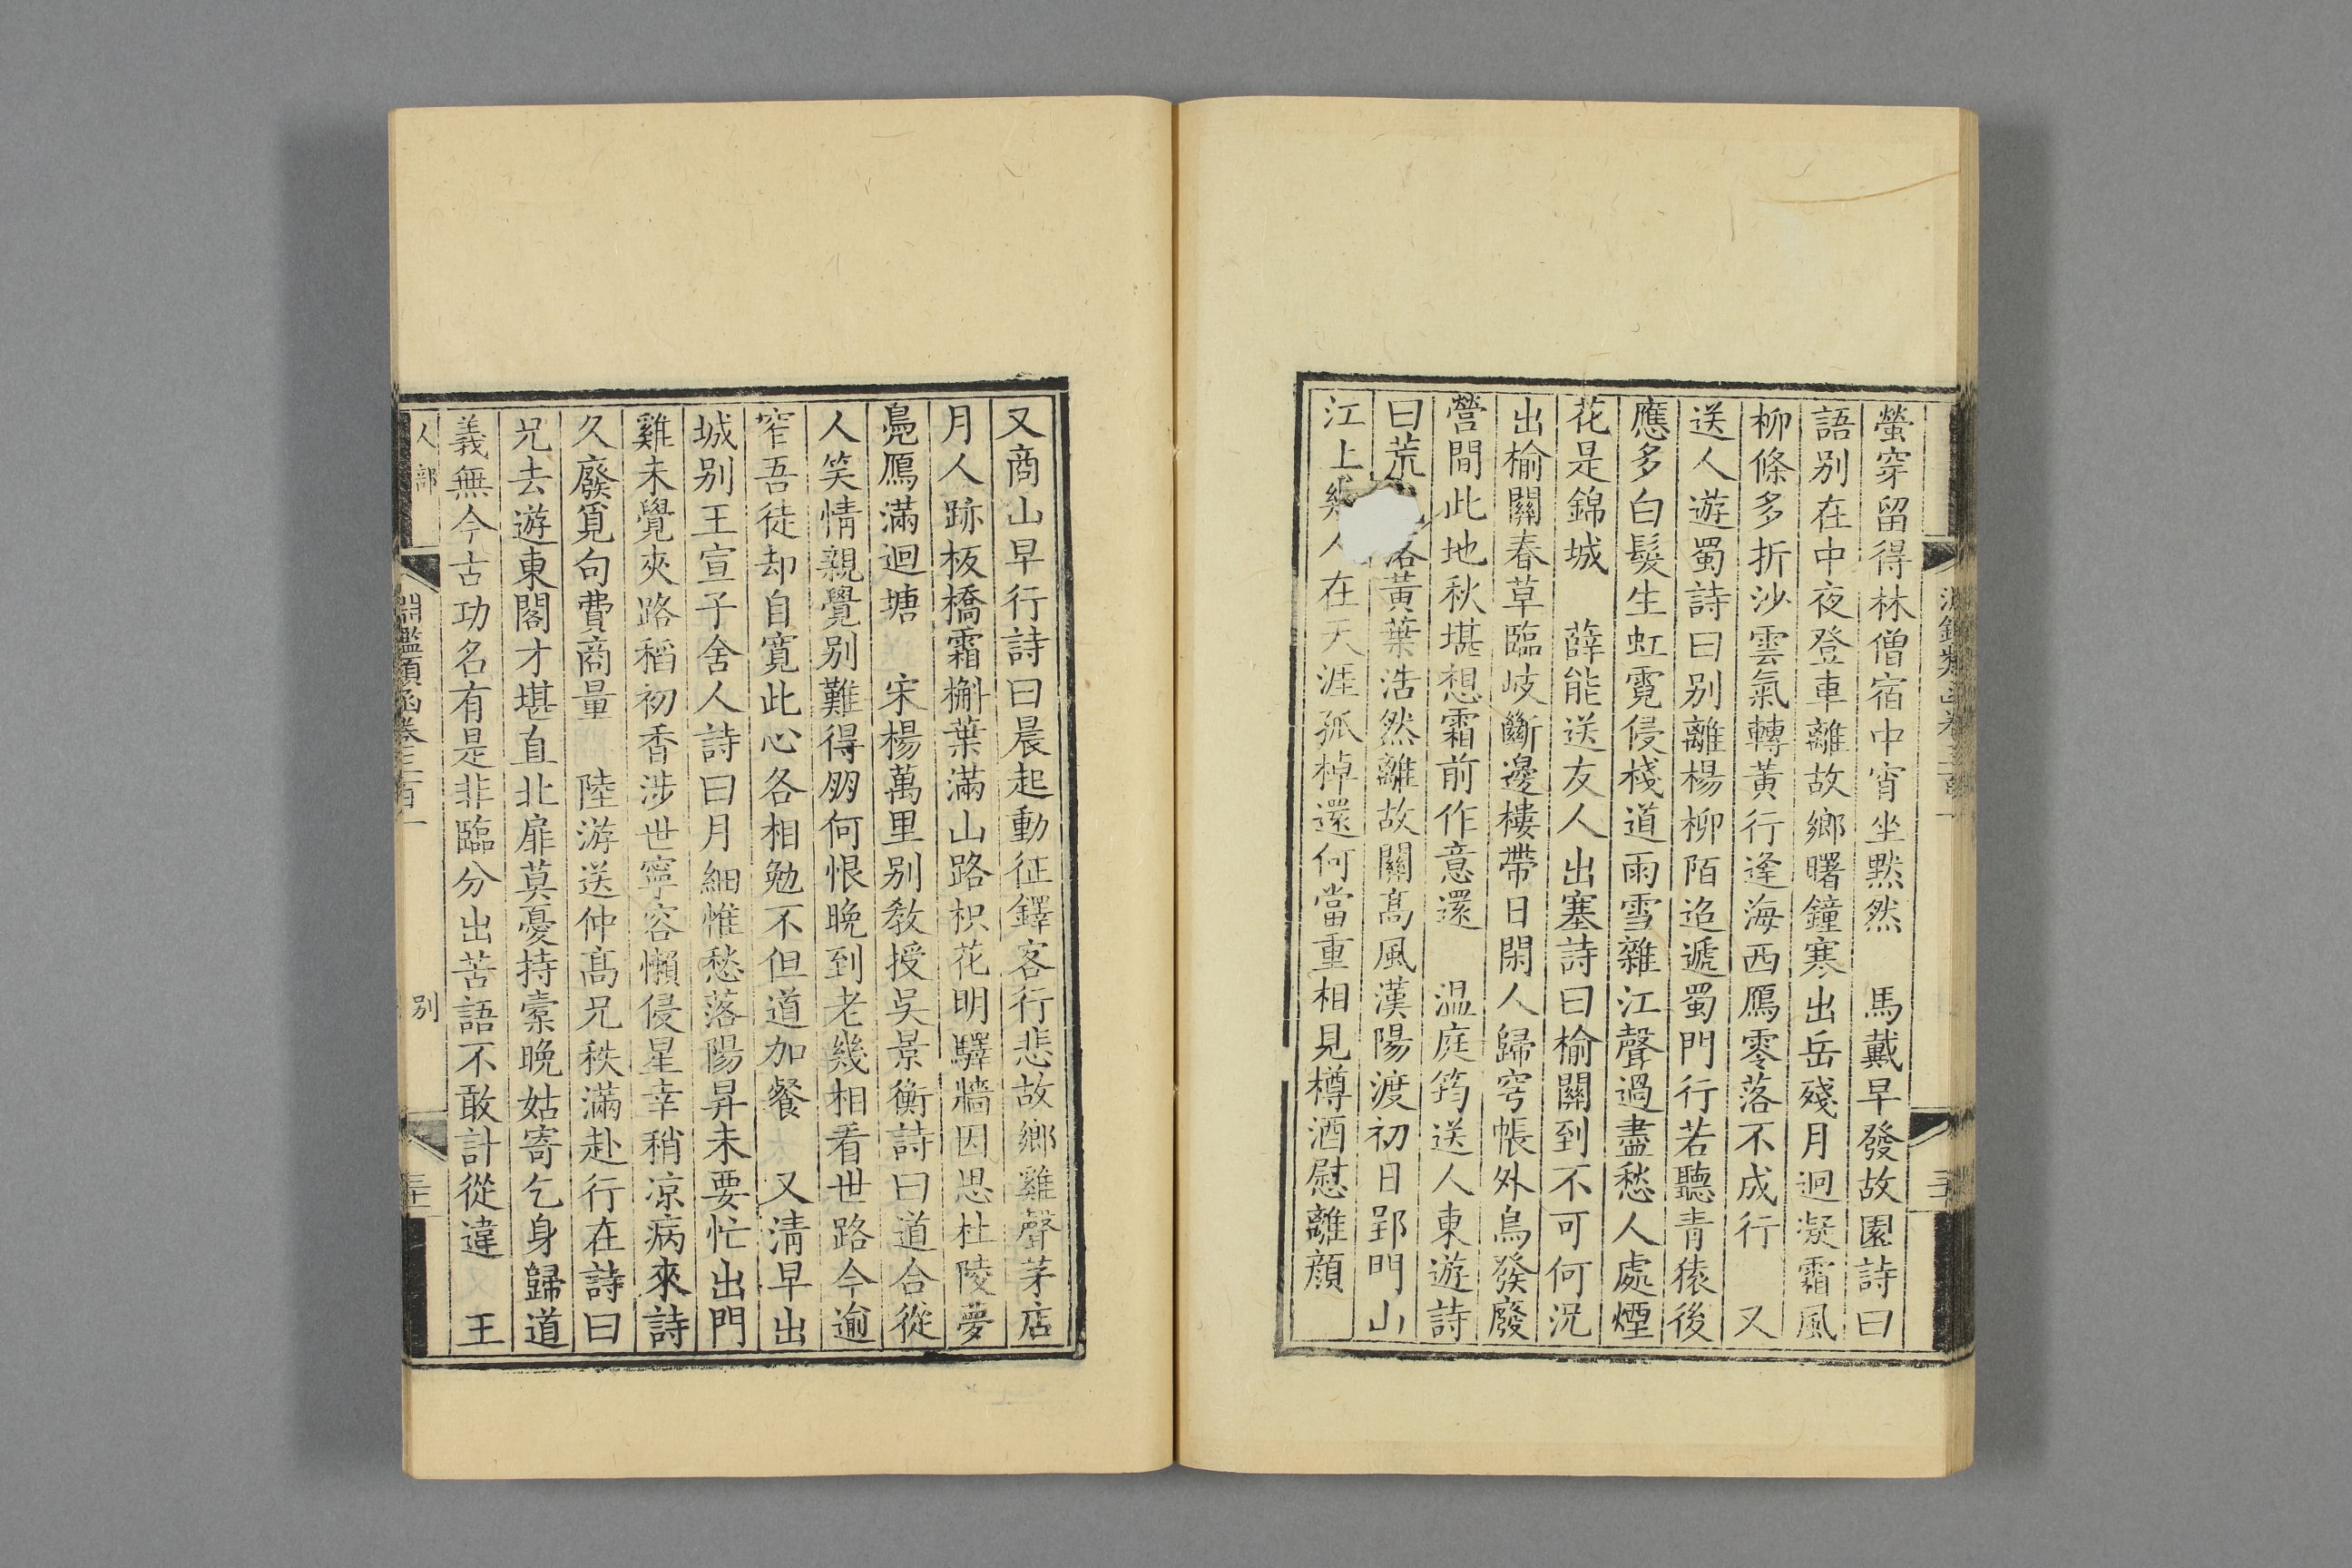 螢穿留得林僧宿中宵坐黙然　馬戴早發故園詩曰
語別在中夜登車離故鄉曙鐘寒出岳殘月迥凝霜風
柳條多折沙雲氣轉黃行逢海西鴈零落不成行　又
送人遊蜀詩曰別離楊柳陌迢遞蜀門行若聽青猿後
應多白髮生虹霓侵棧道雨雪雜江聲過盡愁人處煙
花是錦城　薛能送友人出塞詩曰榆關到不可何況
出榆關春草臨岐斷邊樓帶日閑人歸穹帳外鳥發廢
營間此地秋堪想霜前作意還　温庭筠送人東遊詩
曰荒落黃葉浩然離故關髙風漢陽渡初日郢門山
江上人在天涯孤棹還何當重相見樽酒慰離顔
又商山早行詩曰晨起動征鐸客行悲故鄉雞聲茅店
月人跡板橋霜槲葉滿山路枳花明驛牆因思杜陵夢
鳧鴈滿迴塘　宋楊萬里别教授吳景衡詩曰道合從
人笑情親覺別難得朋何恨晚到老幾相看世路今逾
窄吾徒却自寬此心各相勉不但道加餐　又清早出
城别王宣子舍人詩曰月細惟愁落陽昇未要忙出門
雞未覺夾路稻初香涉世寧容懶侵星幸稍凉病來詩
久廢覓句費商量　陸游送仲髙兄秩滿赴行在詩曰
兄去遊東閣才堪直北扉莫憂持橐晚姑寄乞身歸道
義無今古功名有是非臨分出苦語不敢計從違　王
人部
淵鑑類函卷三百一
别